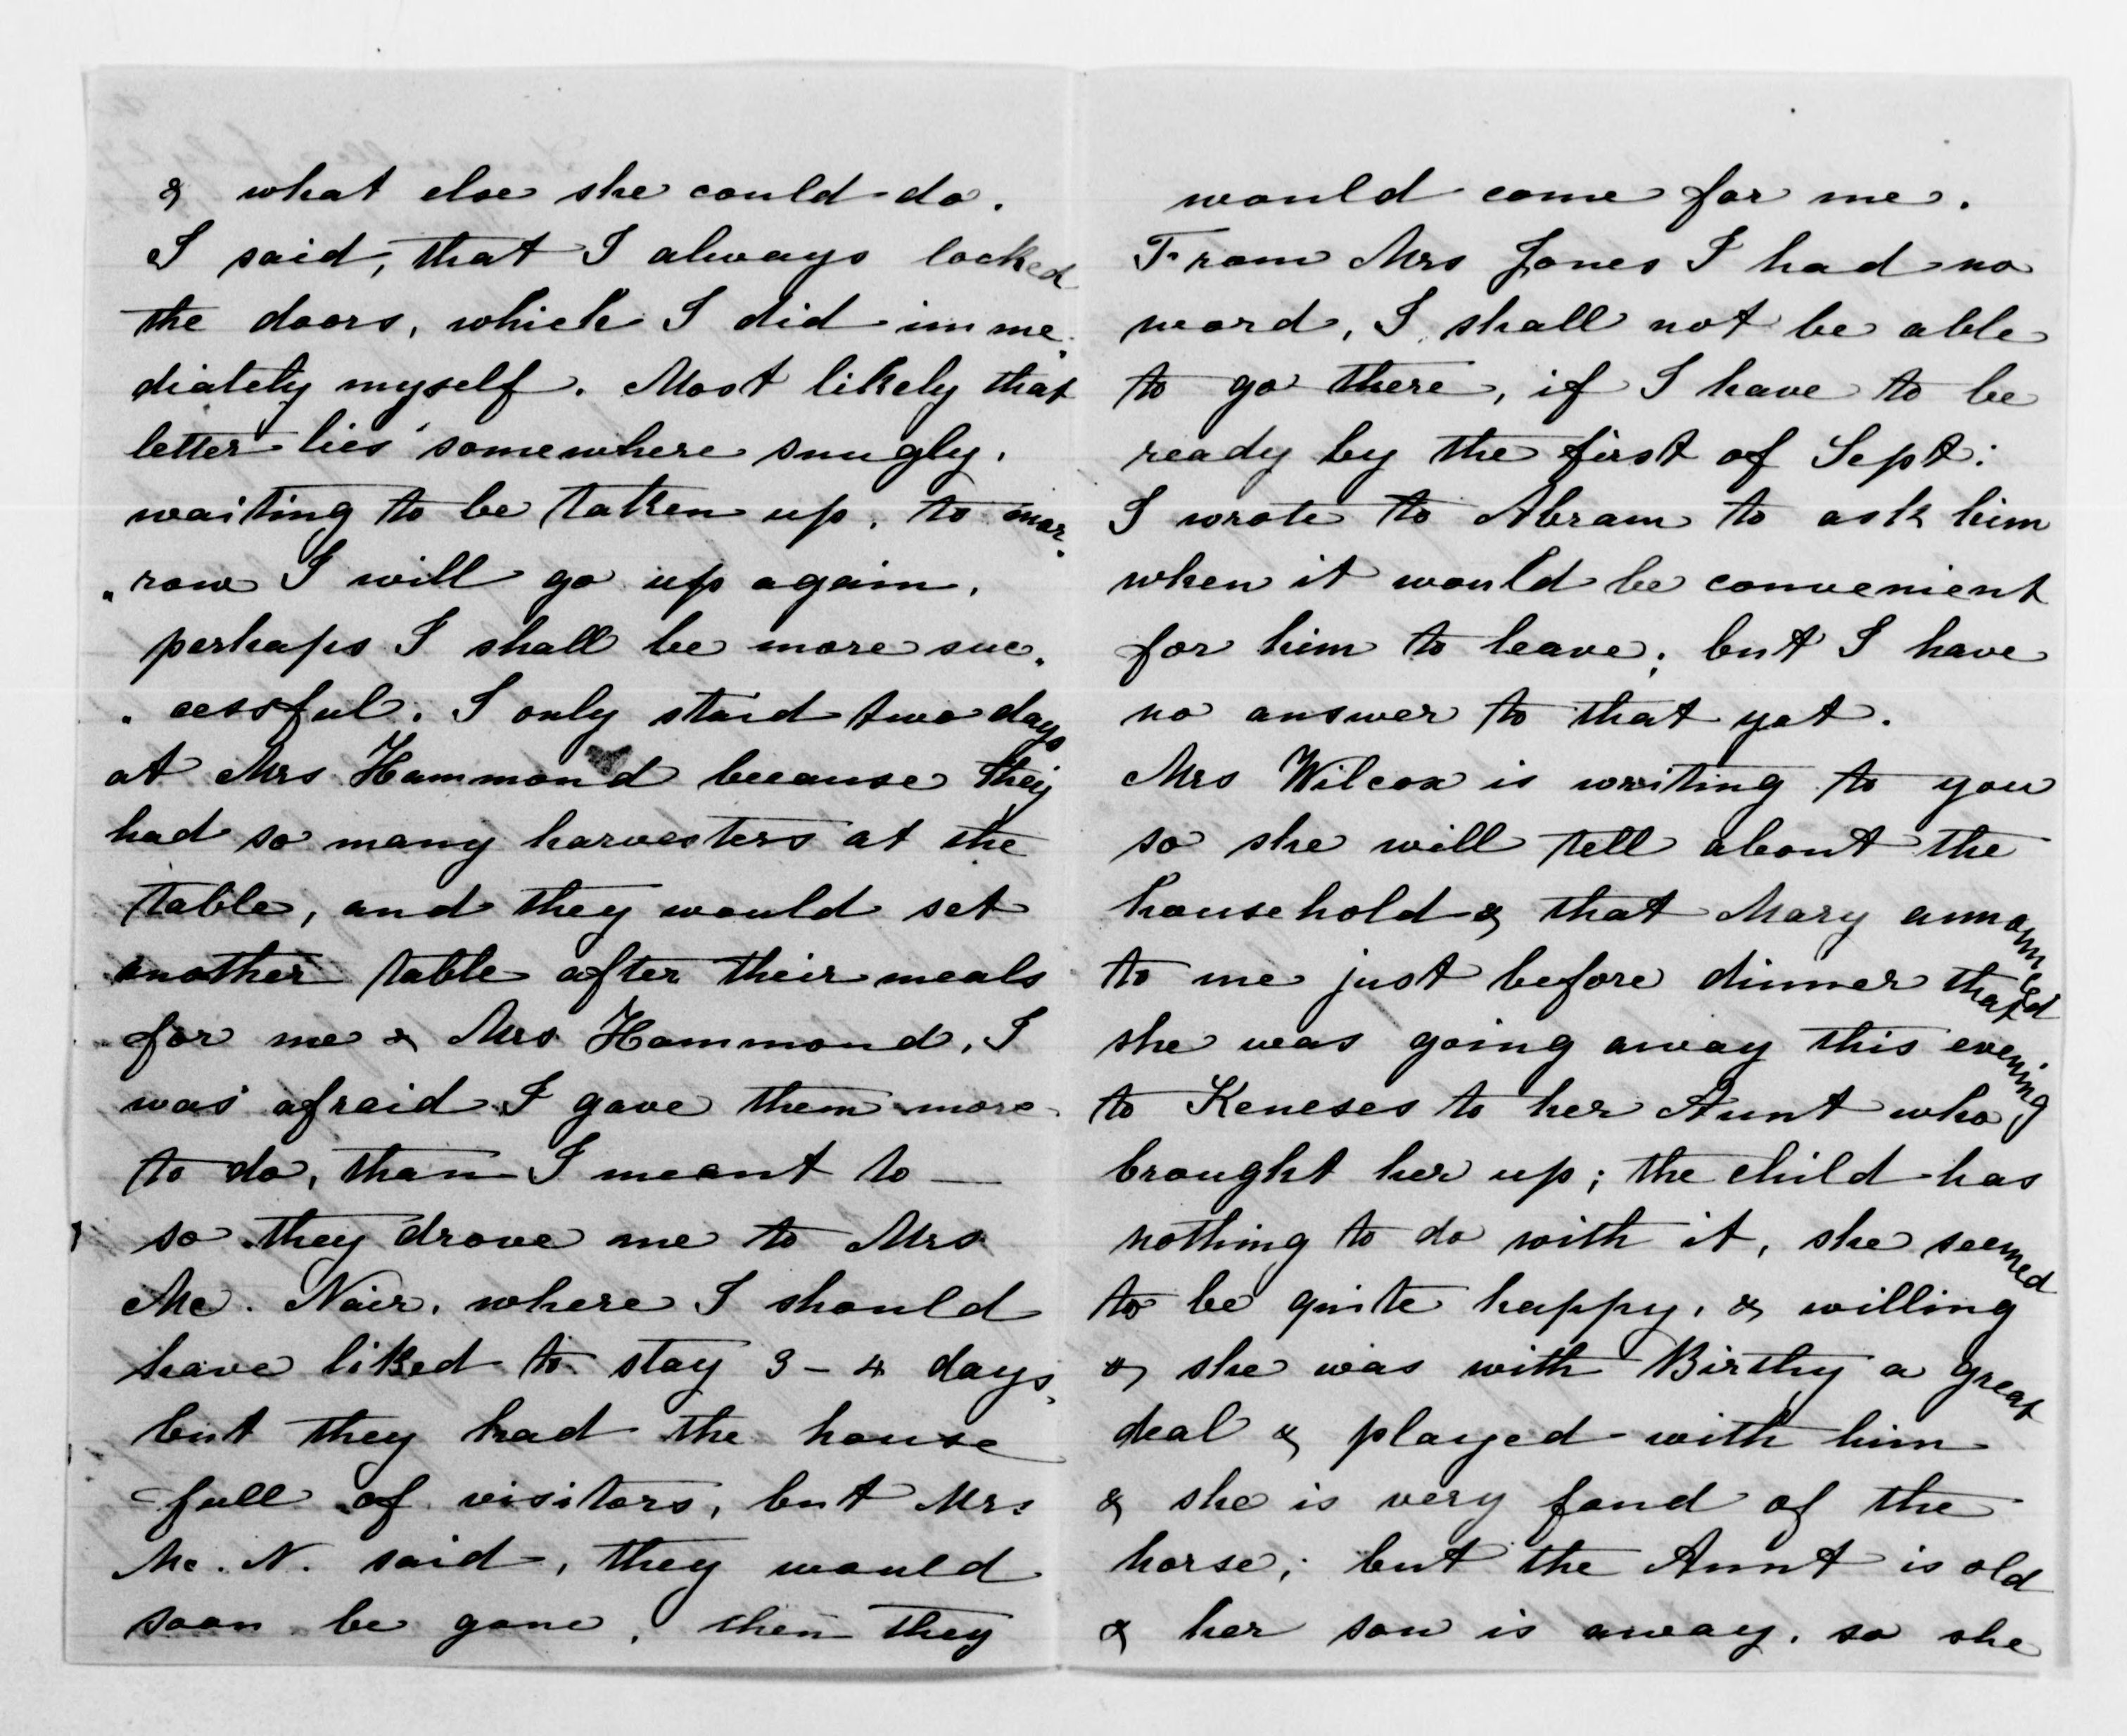 & what else she could do.
I said, that I always locked
the doors, which I did imme„
diately myself. Most likely that
letter lies somewhere snugly.
waiting to be taken up. to mor„
„row I will go up again,
perhaps I shall be more suc„
„cessful. I only staid two days
at Mrs Hammond because they
had so many harvesters at the
table, and they would set
another table after their meals
for me & Mrs Hammond. I
was afraid I gave them more
to do, than I meant to —
so they drove me to Mrs
Mc. Nair. where I should
have liked to stay 3 – 4 days,
but they had the house
full of visitors, but Mrs
Mc. N. said, they would
soon be gone, then they
would come for me.
From Mrs Jones I had no
word, I shall not be able
to go there, if I have to be
ready by the first of Sept:
I wrote to Abram to ask him
when it would be convenient
for him to leave; but I have
no answer to that yet.
Mrs Wilcox is writing to you
so she will tell about the
household & that Mary announced
to me just before dinner that
she was going away this evening
to Keneses to her Aunt who
brought her up; the child has
nothing to do with it, she seemed
to be quite happy, & willing
& she was with Birthy a great
deal & played with him
& she is very fond of the
horse; but the Aunt is old
& her son is away. so she